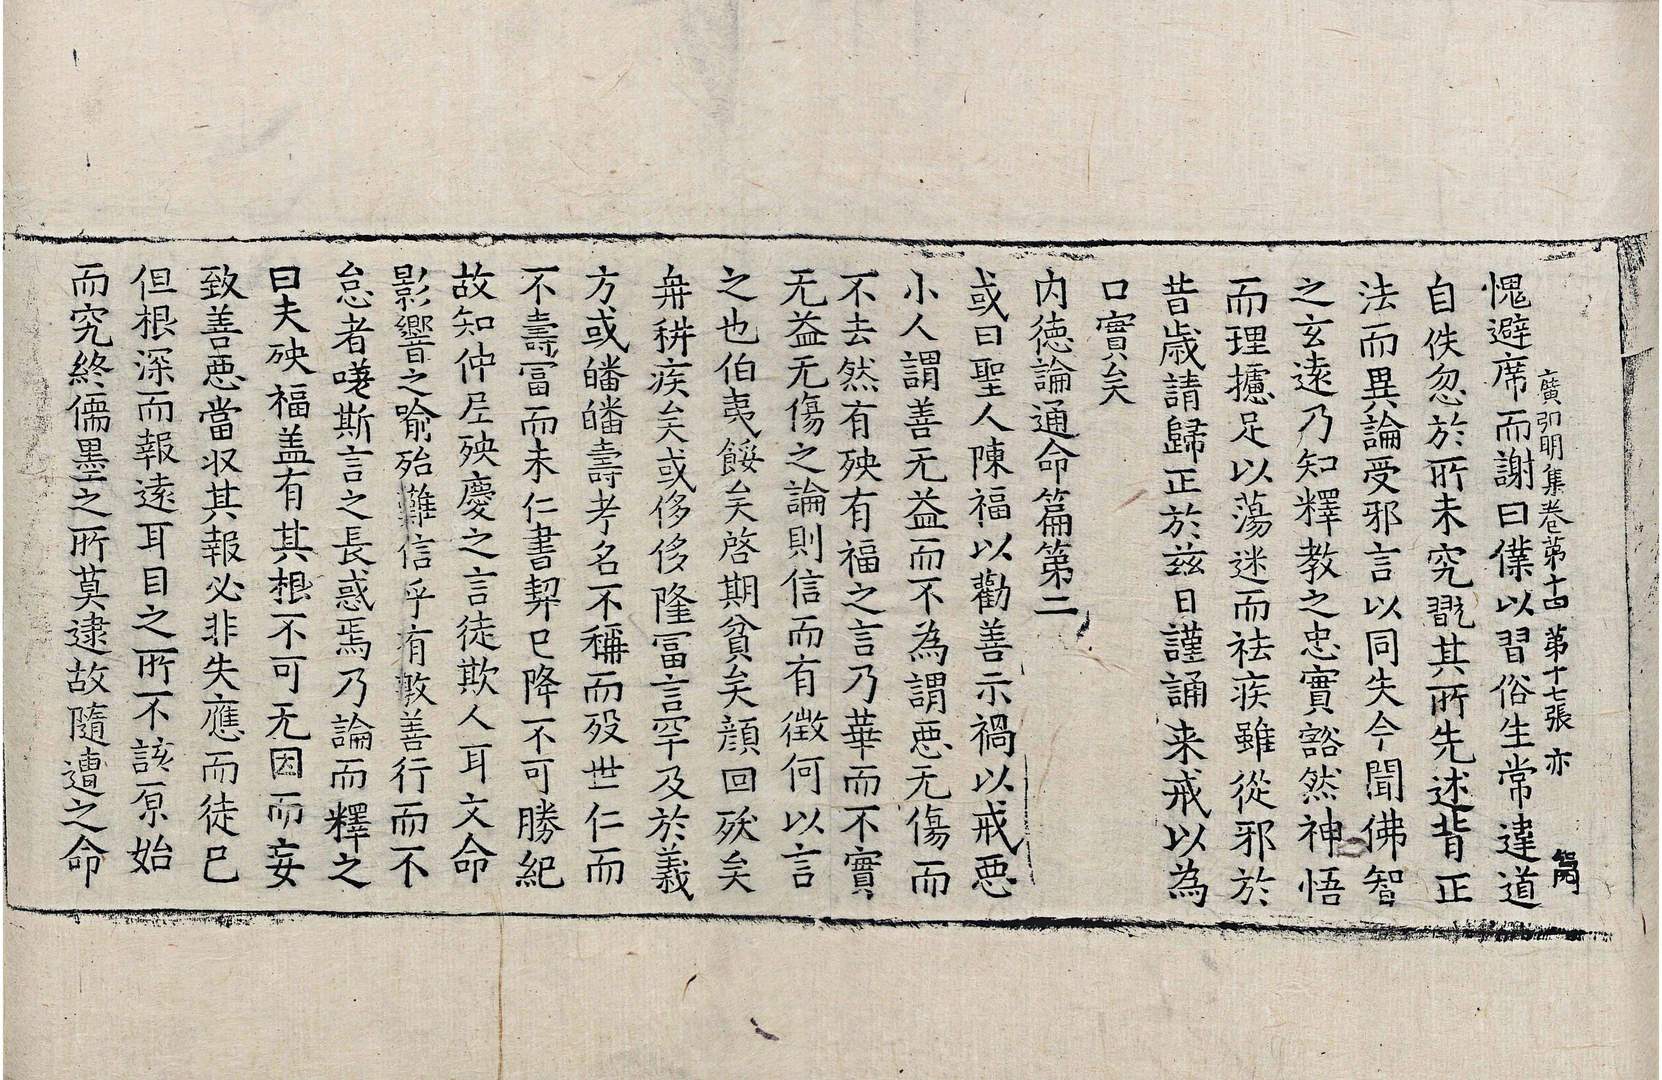 廣弘明集卷第十四 第十七張 亦
愧避席而謝曰僕以習俗生常違道
自佚忽於所未究翫其所先述背正
法而異論受邪言以同失今聞佛智
之玄遠乃知釋教之忠實豁然神悟
而理攄足以蕩迷而祛疾雖從邪於
昔歲請歸正於茲日謹誦来戒以為
口實矣
内德論通命篇第二
或曰聖人陳福以勸善示禍以戒惡
小人謂善无益而不為謂惡无傷而
不去然有殃有福之言乃華而不實
无益无傷之論則信而有徵何以言
之也伯夷餒矣啓期貧矣顔回殀矣
冉耕疾矣或侈侈隆冨言罕及於義
方或皤皤壽考名不稱而殁世仁而
不壽冨而未仁書契已降不可勝紀
故知仲尼殃慶之言徒欺人耳文命
影響之喻殆難信乎有敦善行而不
怠者嘆斯言之長惑焉乃論而釋之
曰夫殃福盖有其根不可无因而妄
致善惡當収其報必非失應而徒已
但根深而報逺耳目之所不該原始
而究終儒墨之所莫逮故隨遭之命